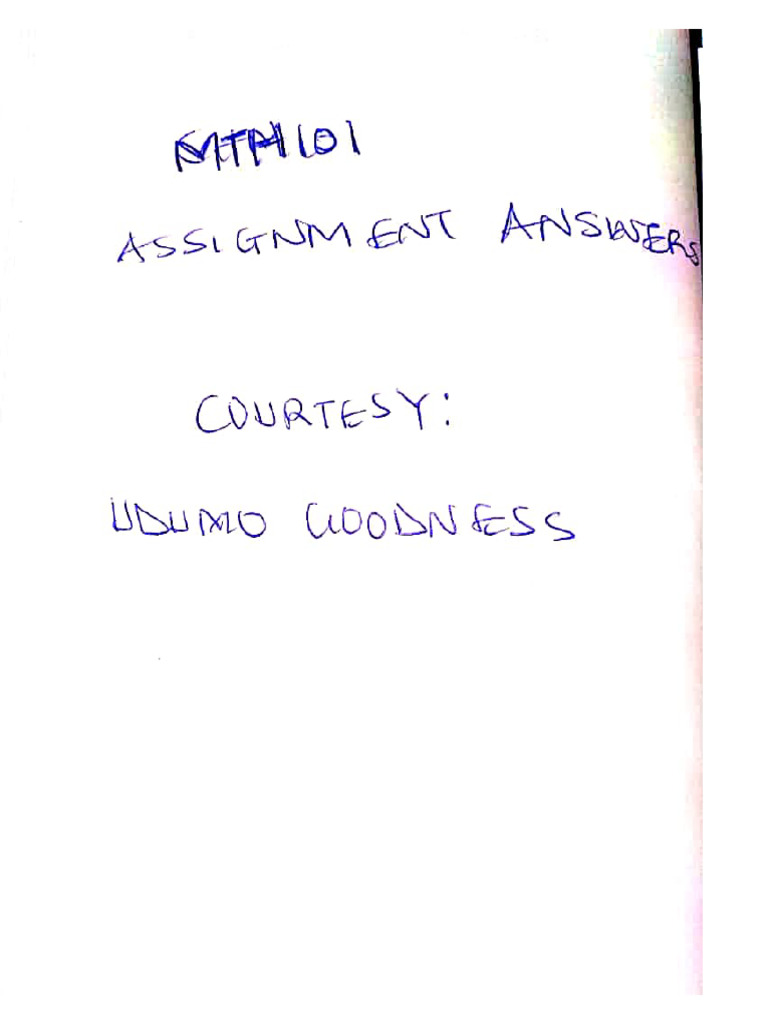 MTH101
ASSIGNMENT ANSWERS
COURTESY:
UDUMO GOODNESS